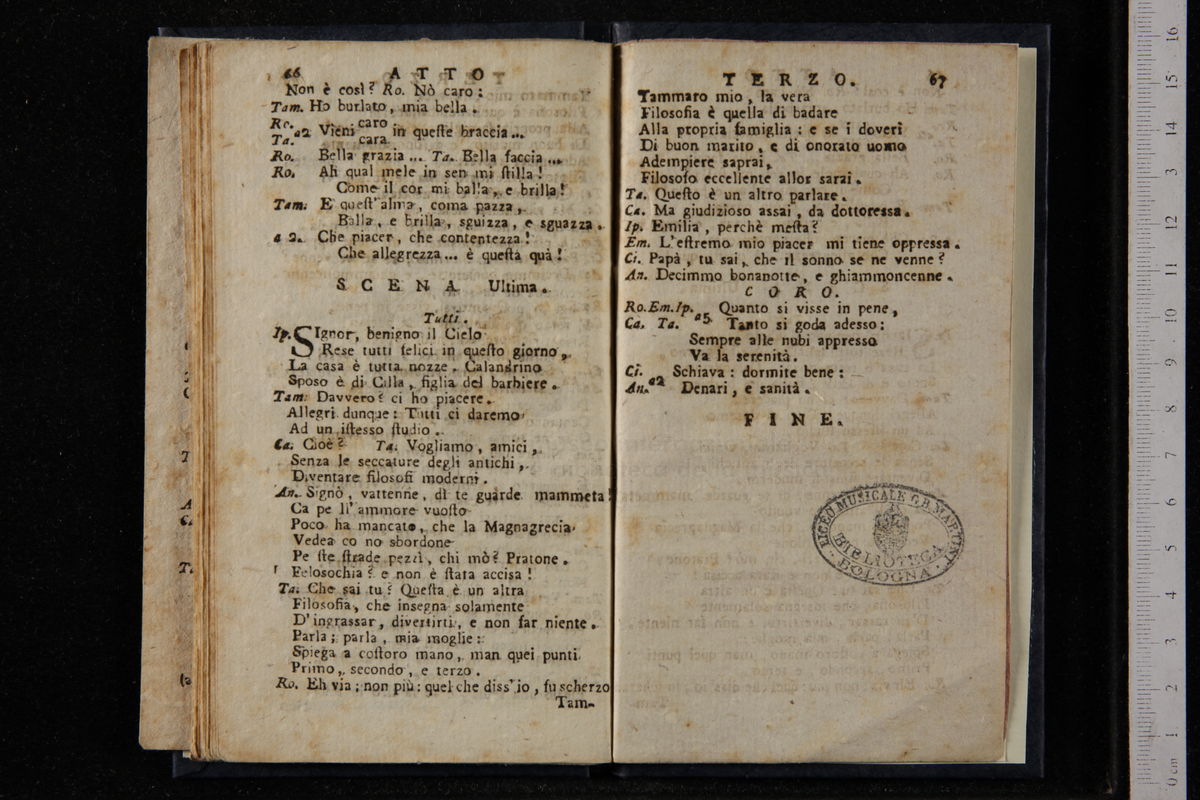 66 ATTO
Non è così? Ro. Nò caro:
Tam. Ho burlato, mia bella.
Ro. Ta. a2 Vieni caro cara in queſte braccia...
Ro. Bella grazia... Ta. Bella faccia...
Ro. Ah qual mele in sen mi ſtilla!
Come il cor mi balla, e brilla!
Tam. E queſt'alma, coma pazza,
Balla, e brilla, sguizza, e sguazza.
a 2. Che piacer, che contentezza!
Che allegrezza... è queſta quà!
SCENA Ultima.
Tutti.
Ip. SIgnor, benigno il Cielo
Rese tutti felici in queſto giorno,
La casa è tutta nozze. Calandrino
Sposo è di Cilla, figlia del barbiere.
Tam. Davvero? ci ho piacere.
Allegri dunque: Tutti ci daremo
Ad un iſtesso ſtudio.
Ca. Cioè? Ta. Vogliamo, amici,
Senza le seccature degli antichi,
Diventare filosofi moderni.
An. Signò, vattenne, di te guarde mammeta!
Ca pe li' ammore vuoſto
Poco ha mancato, che la Magnagrecia
Vedea co no sbordone
Pe ſte ſtrade pezzì, chi mò? Pratone.
Felosochia? e non è ſtata accisa!
Ta. Che sai tu? Queſta è un altra
Filosofia, che insegna solamente
D'ingrassar, divertirti, e non far niente.
Parla; parla, mia moglie:
Spiega a coſtoro mano, man quei punti
Primo, secondo, e terzo.
Ro. Eh via; non più: quel che diss'io, fu scherzo
Tam-
TERZO. 67
Tammaro mio, la vera
Filosofia è quella di badare
Alla propria famiglia: e se i doveri
Di buon marito, e di onorato uomo
Adempiere saprai,
Filosofo eccellente allor sarai.
Ta. Queſto è un altro parlare.
Ca. Ma giudizioso assai, da dottoressa.
Ip. Emilia, perchè meſta?
Em. L'eſtremo mio piacer mi tiene oppressa.
Ci. Papà, tu sai, che il sonno se ne venne?
An. Decimmo bonanotte, e ghiammoncenne.
CORO.
Ro. Em. Ip. Quanto si visse in pene,
Ca. Ta. a5 Tanto si goda adesso:
Sempre alle nubi appresso
Va la serenità.
Ci. Schiava: dormite bene:
An. a2 Denari, e sanità.
FINE.
LICEO MUSICALE G.B. MARTINI
BIBLIOTECA
BOLOGNA